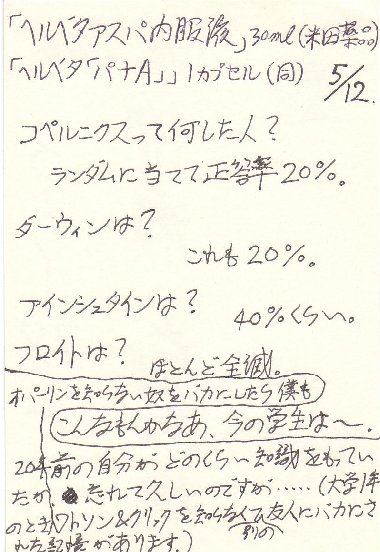 「ヘルベタアスパ内服液」30ml(米田薬品)
「ヘルベタ「パナA」」1カプセル(同)
5/12.
コペルニクスって何した人?
ランダムに当てて正答率20%。
ダーウィンは?
これも20%。
アインシュタインは?
40%くらい。
フロイトは?
ほとんど全滅。
オパーリンを知らない奴をバカにしたら僕も
こんなもんかなあ、今の学生は〜。
20年前の自分がどのくらい知識をもってい
たか 忘れて久しいのですが……(大学1年
のときワトソン&クリックを知らなくて別の友人にバカにさ
れた記憶があります。)